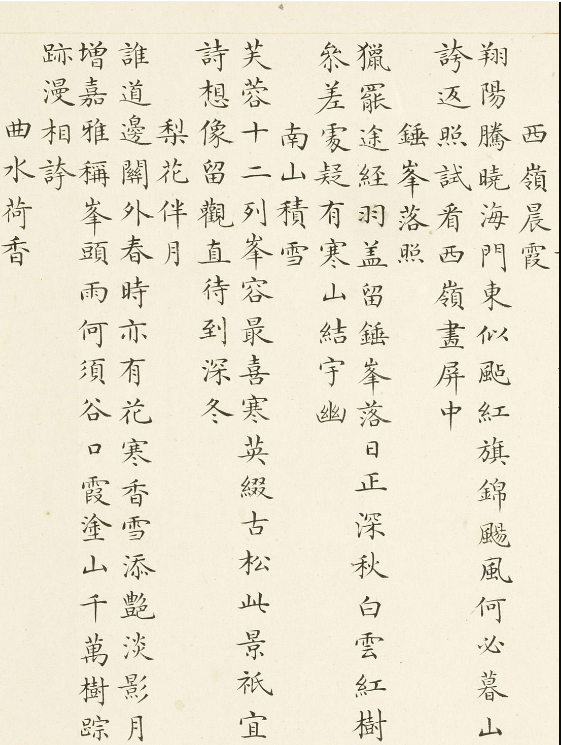 西嶺晨霞
翔陽騰曉海門東似颭紅旗錦颺風何必暮山
誇返照試看西嶺畫屏中
錘峯落照
獵罷途経羽盖留錘峯落日正深秋白雲紅樹
叅差處疑有寒山結宇幽
南山積雪
芙蓉十二列峯容最喜寒英綴古松此景祇宜
詩想像留觀直待到深冬
梨花伴月
誰道邊關外春時亦有花寒香雪添艷淡影月
增嘉雅稱峯頭雨何須谷口霞塗山千萬樹踪
跡漫相誇
曲水荷香